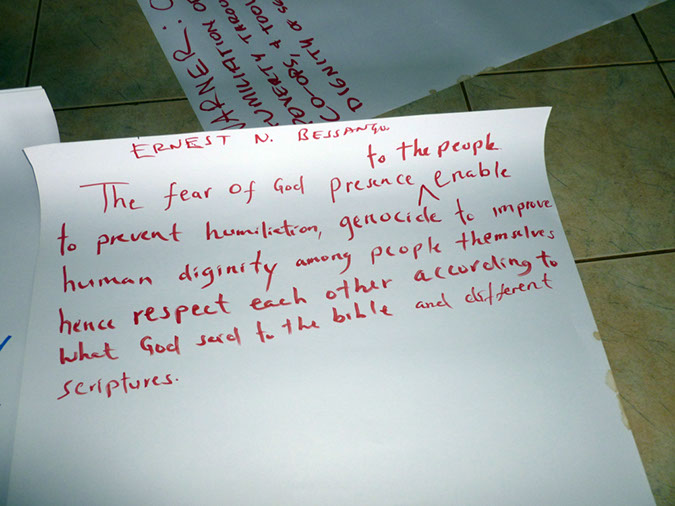 WARNER: C
HUMILIATION OF
POVERTY THROU
CO-OPS, & TOOL
DIGNITY OF SE
ERNEST N. BESSANGU
to the people
The fear of God presence ^ enable
to prevent humiliction, genocide to improve
human diginity among people themselves
hence respect each other according to
what God said to the bible and different
scriptures.